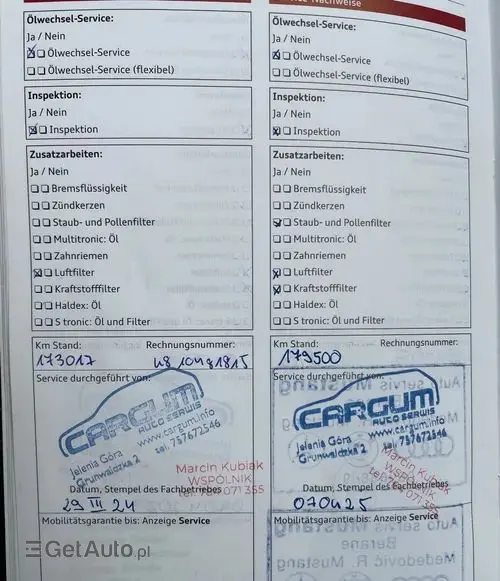 Ölwechsel-Service:
Ja / Nein
Ölwechsel-Service
Ölwechsel-Service (flexibel)
Inspektion:
Ja / Nein
Inspektion
Zusatzarbeiten:
Ja / Nein
Bremsflüssigkeit
Zündkerzen
Staub- und Pollenfilter
Multitronic: Öl
Zahnriemen
Luftfilter
Kraftstofffilter
Haldex: Öl
S tronic: Öl und Filter
Km Stand: Rechnungsnummer:
173017
Service durchgeführt von:
CARGUM
AUTO SERWIS
www.cargum.info
Jelenia Góra
Grunwaldzka 2
tel: 757672546
Marcin Kubiak
WSPÓLNIK
071 355
Datum, Stempel des Fachbetriebes
29 III 24
Mobilitätsgarantie bis: Anzeige Service
Nachweise
Ölwechsel-Service:
Ja / Nein
Ölwechsel-Service
Ölwechsel-Service (flexibel)
Inspektion:
Ja / Nein
Inspektion
Zusatzarbeiten:
Ja / Nein
Bremsflüssigkeit
Zündkerzen
Staub- und Pollenfilter
Multitronic: Öl
Zahnriemen
Luftfilter
Kraftstofffilter
Haldex: Öl
S tronic: Öl und Filter
Km Stand: Rechnungsnummer:
179500
Service durchgeführt von:
CARGUM
AUTO SERWIS
www.cargum.info
Jelenia Góra
Grunwaldzka 2
tel: 757672546
Marcin Kubiak
WSPÓLNIK
Datum, Stempel des Fachbetriebes
070425
Mobilitätsgarantie bis: Anzeige Service
GetAuto.pl